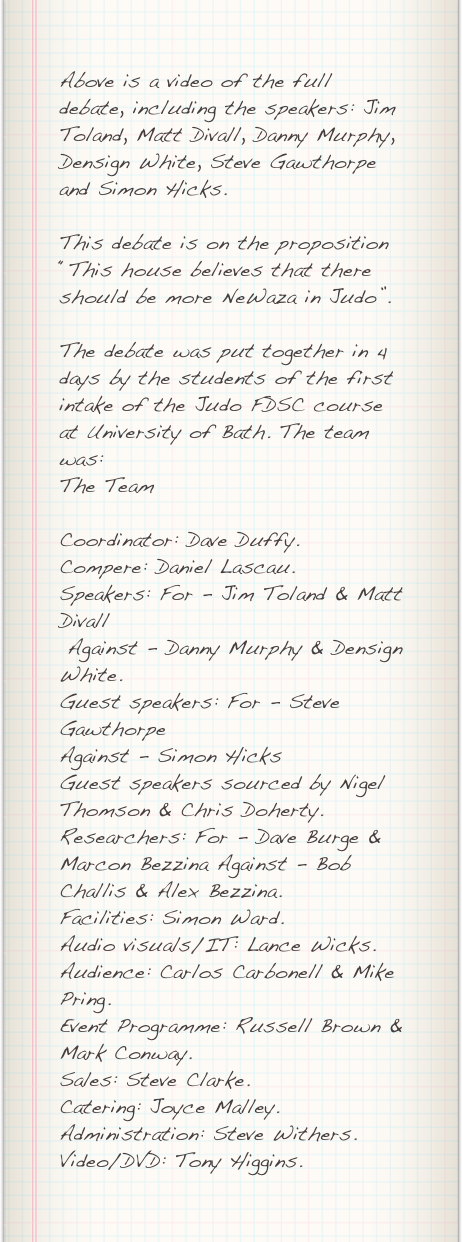 Above is a video of the full
debate, including the speakers: Jim
Toland, Matt Divall, Danny Murphy,
Densign White, Steve Gawthorpe
and Simon Hicks.
This debate is on the proposition
"This house believes that there
should be more NeWaza in Judo".
The debate was put together in 4
days by the students of the first
intake of the Judo FDSC course
at University of Bath. The team
was:
The Team
Coordinator: Dave Duffy.
Compere: Daniel Lascau.
Speakers: For - Jim Toland & Matt
Divall
Against - Danny Murphy & Densign
White.
Guest speakers: For - Steve
Gawthorpe
Against - Simon Hicks
Guest speakers sourced by Nigel
Thomson & Chris Doherty.
Researchers: For - Dave Burge &
Marcon Bezzina Against - Bob
Challis & Alex Bezzina.
Facilities: Simon Ward.
Audio visuals/IT: Lance Wicks.
Audience: Carlos Carbonell & Mike
Pring.
Event Programme: Russell Brown &
Mark Conway.
Sales: Steve Clarke.
Catering: Joyce Malley.
Administration: Steve Withers.
Video/DVD: Tony Higgins.